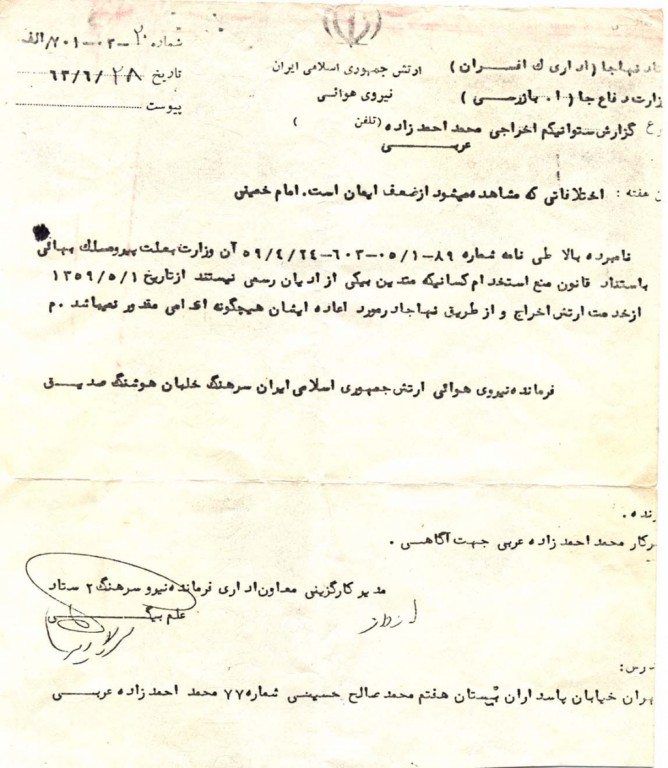 شماره ۲۰-۰۳-۷۰۱/الف
تاریخ ۶۳/۶/۲۸
پیوست
ارتش جمهوری اسلامی ایران
نیروی هوائی
تاد نهاجا (اداری ک افسران)
زارت دفاع جا (۱. بازرسی)
وع گزارش ستوانیکم اخراجی محمد احمد زاده (تلفن )
عربی
ن هفته : اختلافاتی که مشاهده میشود از ضعف ایمان است. امام خمینی
نامبرده بالا طی نامه شماره ۸۹-۰۵/۱-۶۰۳-۵۹/۴/۲۴ آن وزارت بعلت پیرو مسلک بهائی
باستناد قانون منع استخدام کسانیکه متدین بیکی از ادیان رسمی نیستند از تاریخ ۱۳۵۹/۵/۱
از خدمت ارتش اخراج و از طریق نهاجا در مورد اعاده ایشان هیچگونه اقدامی مقدور نمیباشد .م
فرمانده نیروی هوائی ارتش جمهوری اسلامی ایران سرهنگ خلبان هوشنگ صدیق
رنده .
سرکار محمد احمد زاده عربی جهت آگاهی .
مدیر کارگزینی معاون اداری فرمانده نیرو سرهنگ ۲ ستاد
علم بیگی
از طرف
درس:
هران خیابان پاسداران بیستان هفتم محمد صالح حسینی شماره ۷۷ محمد احمد زاده عربی